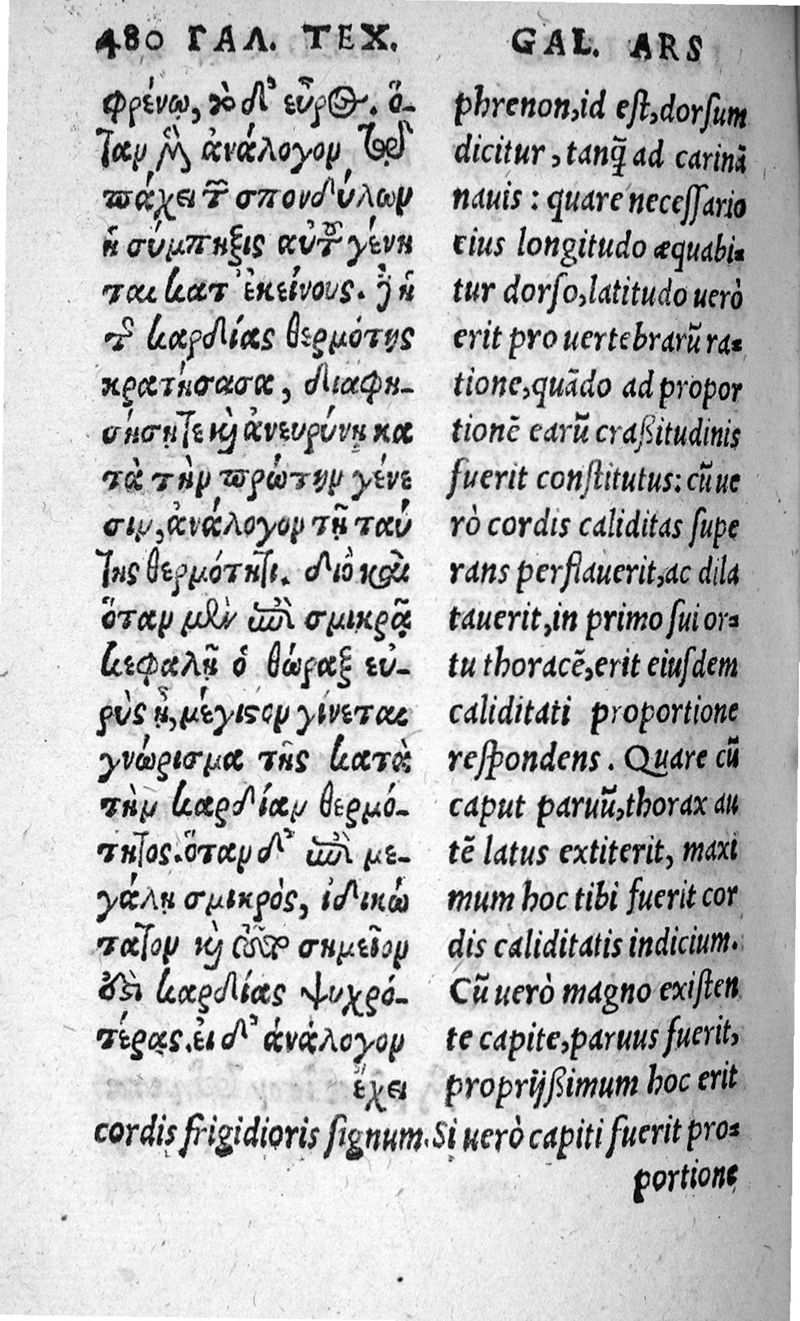 480 ΓΑΛ. ΤΕΧ.
φρένω, καὶ δ' εὖρος. ὅ-
ταν μὲν ἀνάλογον
πάχει τῶν σπονδύλων
ἡ σύμπηξις αὐτῶν γένη
ται κατ' ἐκείνους. ἡ
τῆς καρδίας θερμότης
κρατήσασα, διαφη-
σήσῃ τε καὶ ἀνευρύνῃ κα
τὰ τὴν πρώτην γένε
σιν, ἀνάλογον τῇ ταύ
της θερμότητι. διὸ καὶ
ὅταν μὲν ἐπὶ σμικρᾷ
κεφαλῇ ὁ θώραξ εὐ-
ρὺς ᾖ, μέγιστον γίνεται
γνώρισμα τῆς κατὰ
τὴν καρδίαν θερμό-
τητος. ὅταν δ' ἐπὶ με-
γάλῃ σμικρὸς, ἰδικώ
τατον καὶ σημεῖον
καρδίας ψυχρό-
τέρας. εἰ δ' ἀνάλογον
ἔχει
GAL. ARS
phrenon, id est, dorsum
dicitur, tanq̃ ad carinã
nauis: quare necessario
eius longitudo æquabi-
tur dorso, latitudo uerò
erit pro uertebrarũ ra-
tione, quãdo ad propor
tionẽ earũ craßitudinis
fuerit constitutus: cũ ue
rò cordis caliditas supe
rans perflauerit, ac dila
tauerit, in primo sui or-
tu thoracẽ, erit eiusdem
caliditati proportione
respondens. Quare cũ
caput paruũ, thorax au
tẽ latus extiterit, maxi
mum hoc tibi fuerit cor
dis caliditatis indicium.
Cũ uerò magno existen
te capite, paruus fuerit,
proprijßimum hoc erit
cordis frigidioris signum. Si uerò capiti fuerit pro-
portione